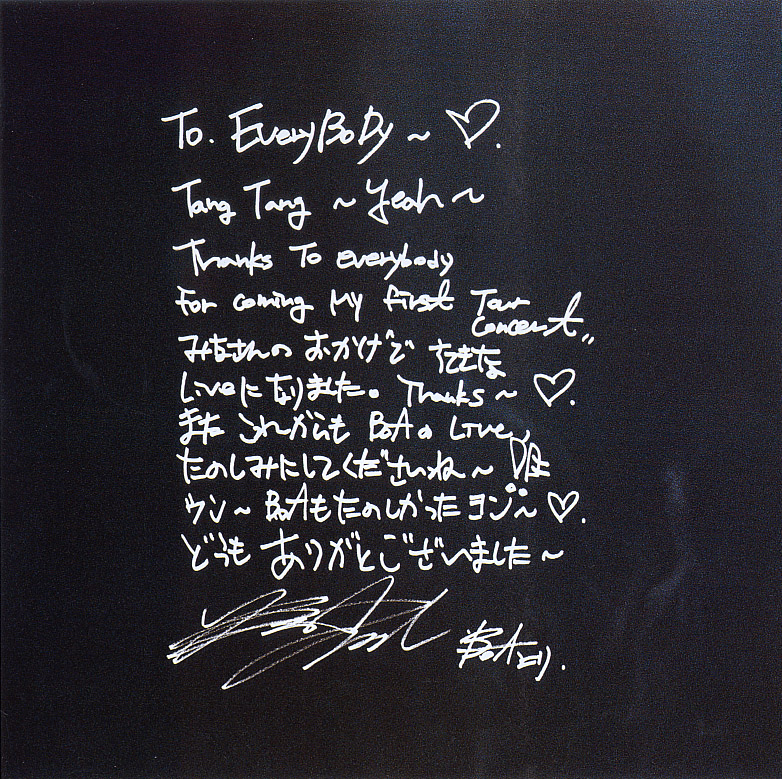 To. EveryBoDy ~ ♡.
Tang Tang ~ Yeah ~
Thanks To everybody
For coming My first Tour
concert,,
みなさんの おかげで すてきな
Liveに なりました。 Thanks ~ ♡.
また これからも BoAの Live
たのしみにしてくださいね~
ウン~ BoAもたのしかったヨン~ ♡.
どうも ありがとございました~
BoAより.